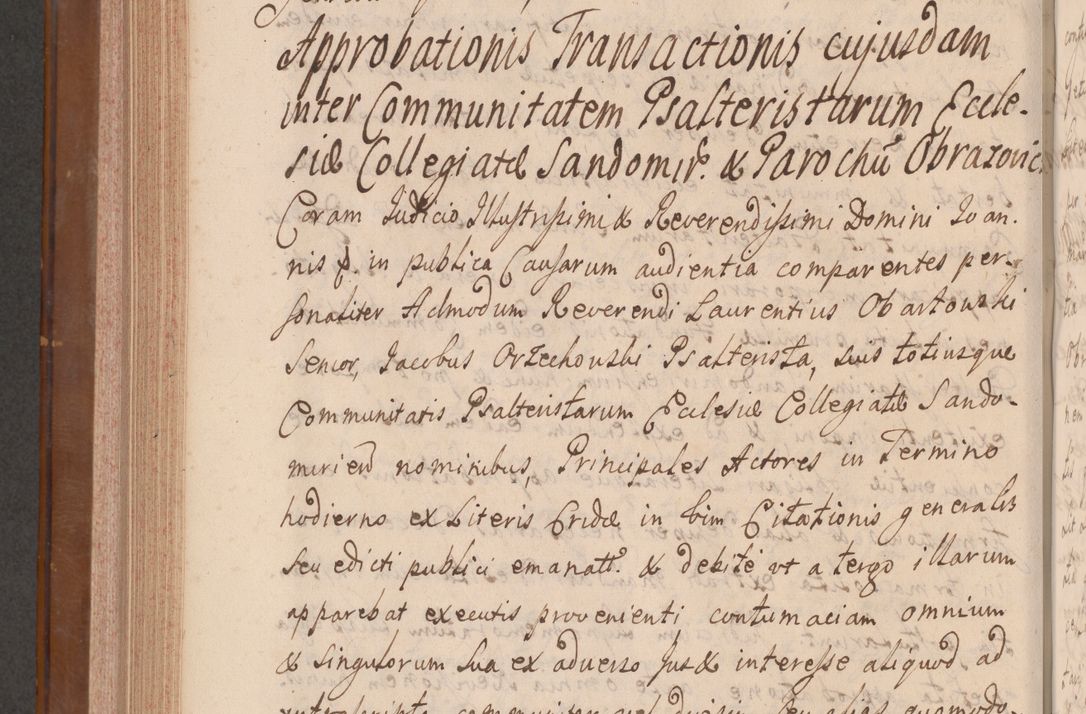 Approbationis Transactionis cujusdam
inter Communitatem Psalteristarum Eccle-
siæ Collegiatæ Sandomir. & Parochũ Obrazovic.
Coram Judicio Illustrissimi & Reverendissimi Domini Joan.
nis in publica Causarum audientia comparentes per-
sonaliter Admodum Reverendi Laurentius Obartowski
Senior, Jacobus Orzechowski Psalterista, suis totiusque
Communitatis Psalteristarum Ecclesiæ Collegiatæ Sando-
mirien nominibus, Principales Actores in Termino
hodierno ex Literis Cridæ in vim Citationis generalis
seu edicti publici emanatt. & debite ut a tergo illarum
apparebat executis provenienti contumaciam omnium
& singulorum sua ex adverso Jus & interesse aliquod ad